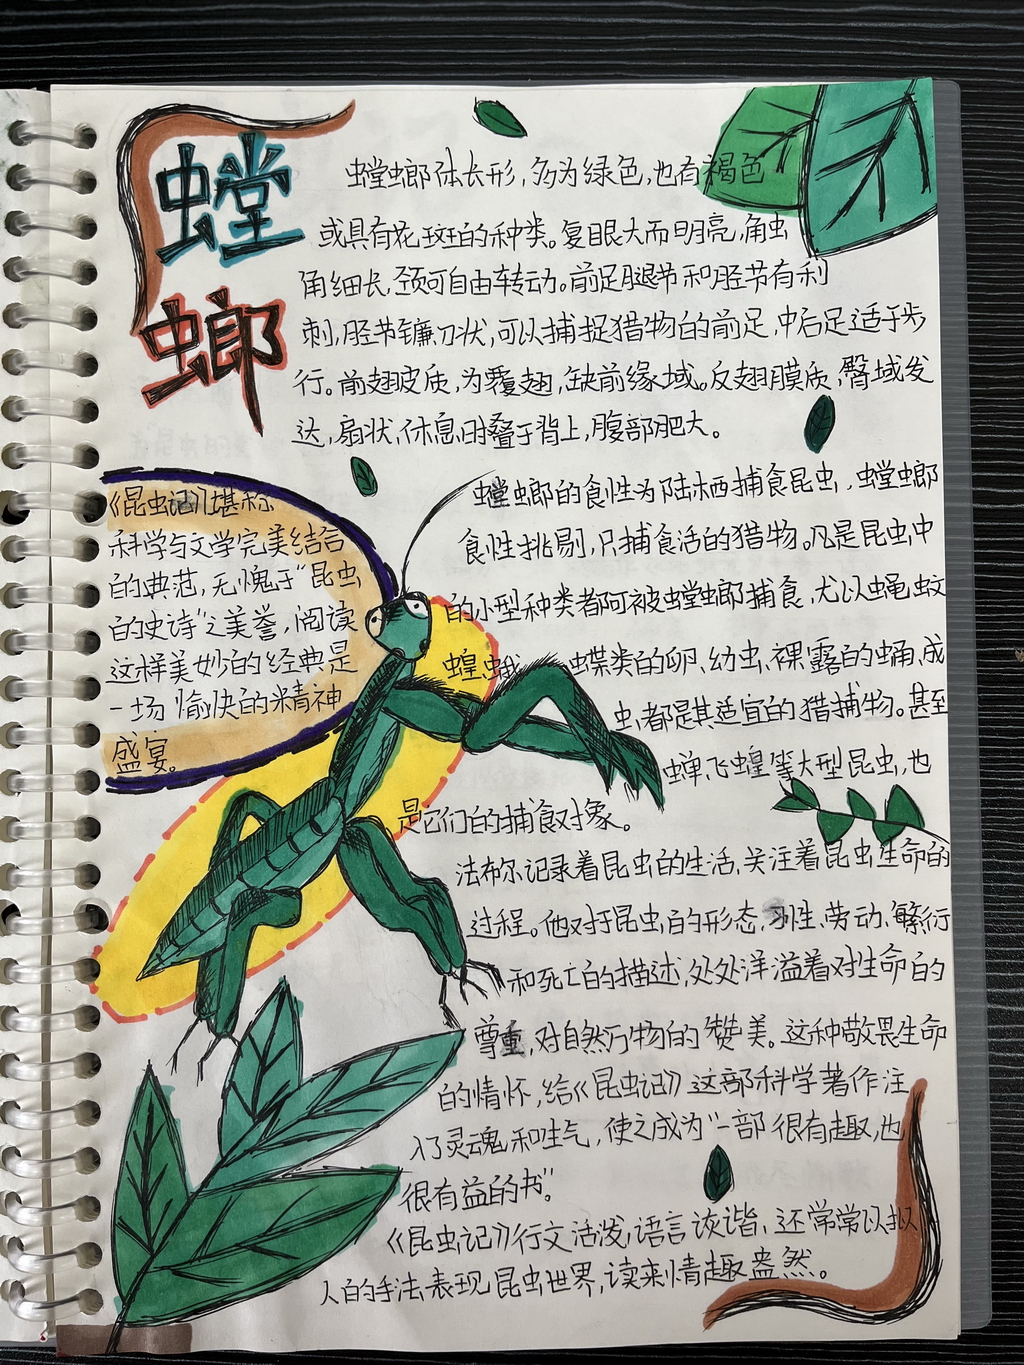 螳
螂
螳螂体长形,多为绿色,也有褐色
或具有花斑的种类。复眼大而明亮,角虫
角细长,颈可自由转动。前足腿节和胫节有利
刺,胫节镰刀状,可以捕捉猎物的前足,中后足适于步
行。前翅皮质,为覆翅,缺前缘域。反翅膜质,臀域发
达,扇状,休息时叠于背上,腹部肥大。
《昆虫记》堪称
科学与文学完美结合
的典范,无愧于“昆虫
的史诗”之美誉,阅读
这样美妙的经典是
一场愉快的精神
盛宴。
螳螂的食性为陆栖捕食昆虫,螳螂
食性挑剔,只捕食活的猎物。凡是昆虫中
的小型种类者阿被螳螂捕食,尤以蝇蚊
蝗蛾 蝶类的卵,幼虫,裸露的蛹,成
虫都是其适宜的猎捕物。甚至
蝉,飞蝗等大型昆虫,也
是它们的捕食对象。
法布尔记录着昆虫的生活,关注着昆虫生命的
过程。他对于昆虫的形态,习性、劳动、繁衍
和死亡的描述,处处洋溢着对生命的
尊重,对自然万物的赞美。这种敬畏生命
的情怀,给《昆虫记》这部科学著作注
入了灵魂和生气,使之成为“一部很有趣,也
很有益的书”。
《昆虫记》行文活泼,语言诙谐,还常常以拟
人的手法表现昆虫世界,读来情趣盎然。